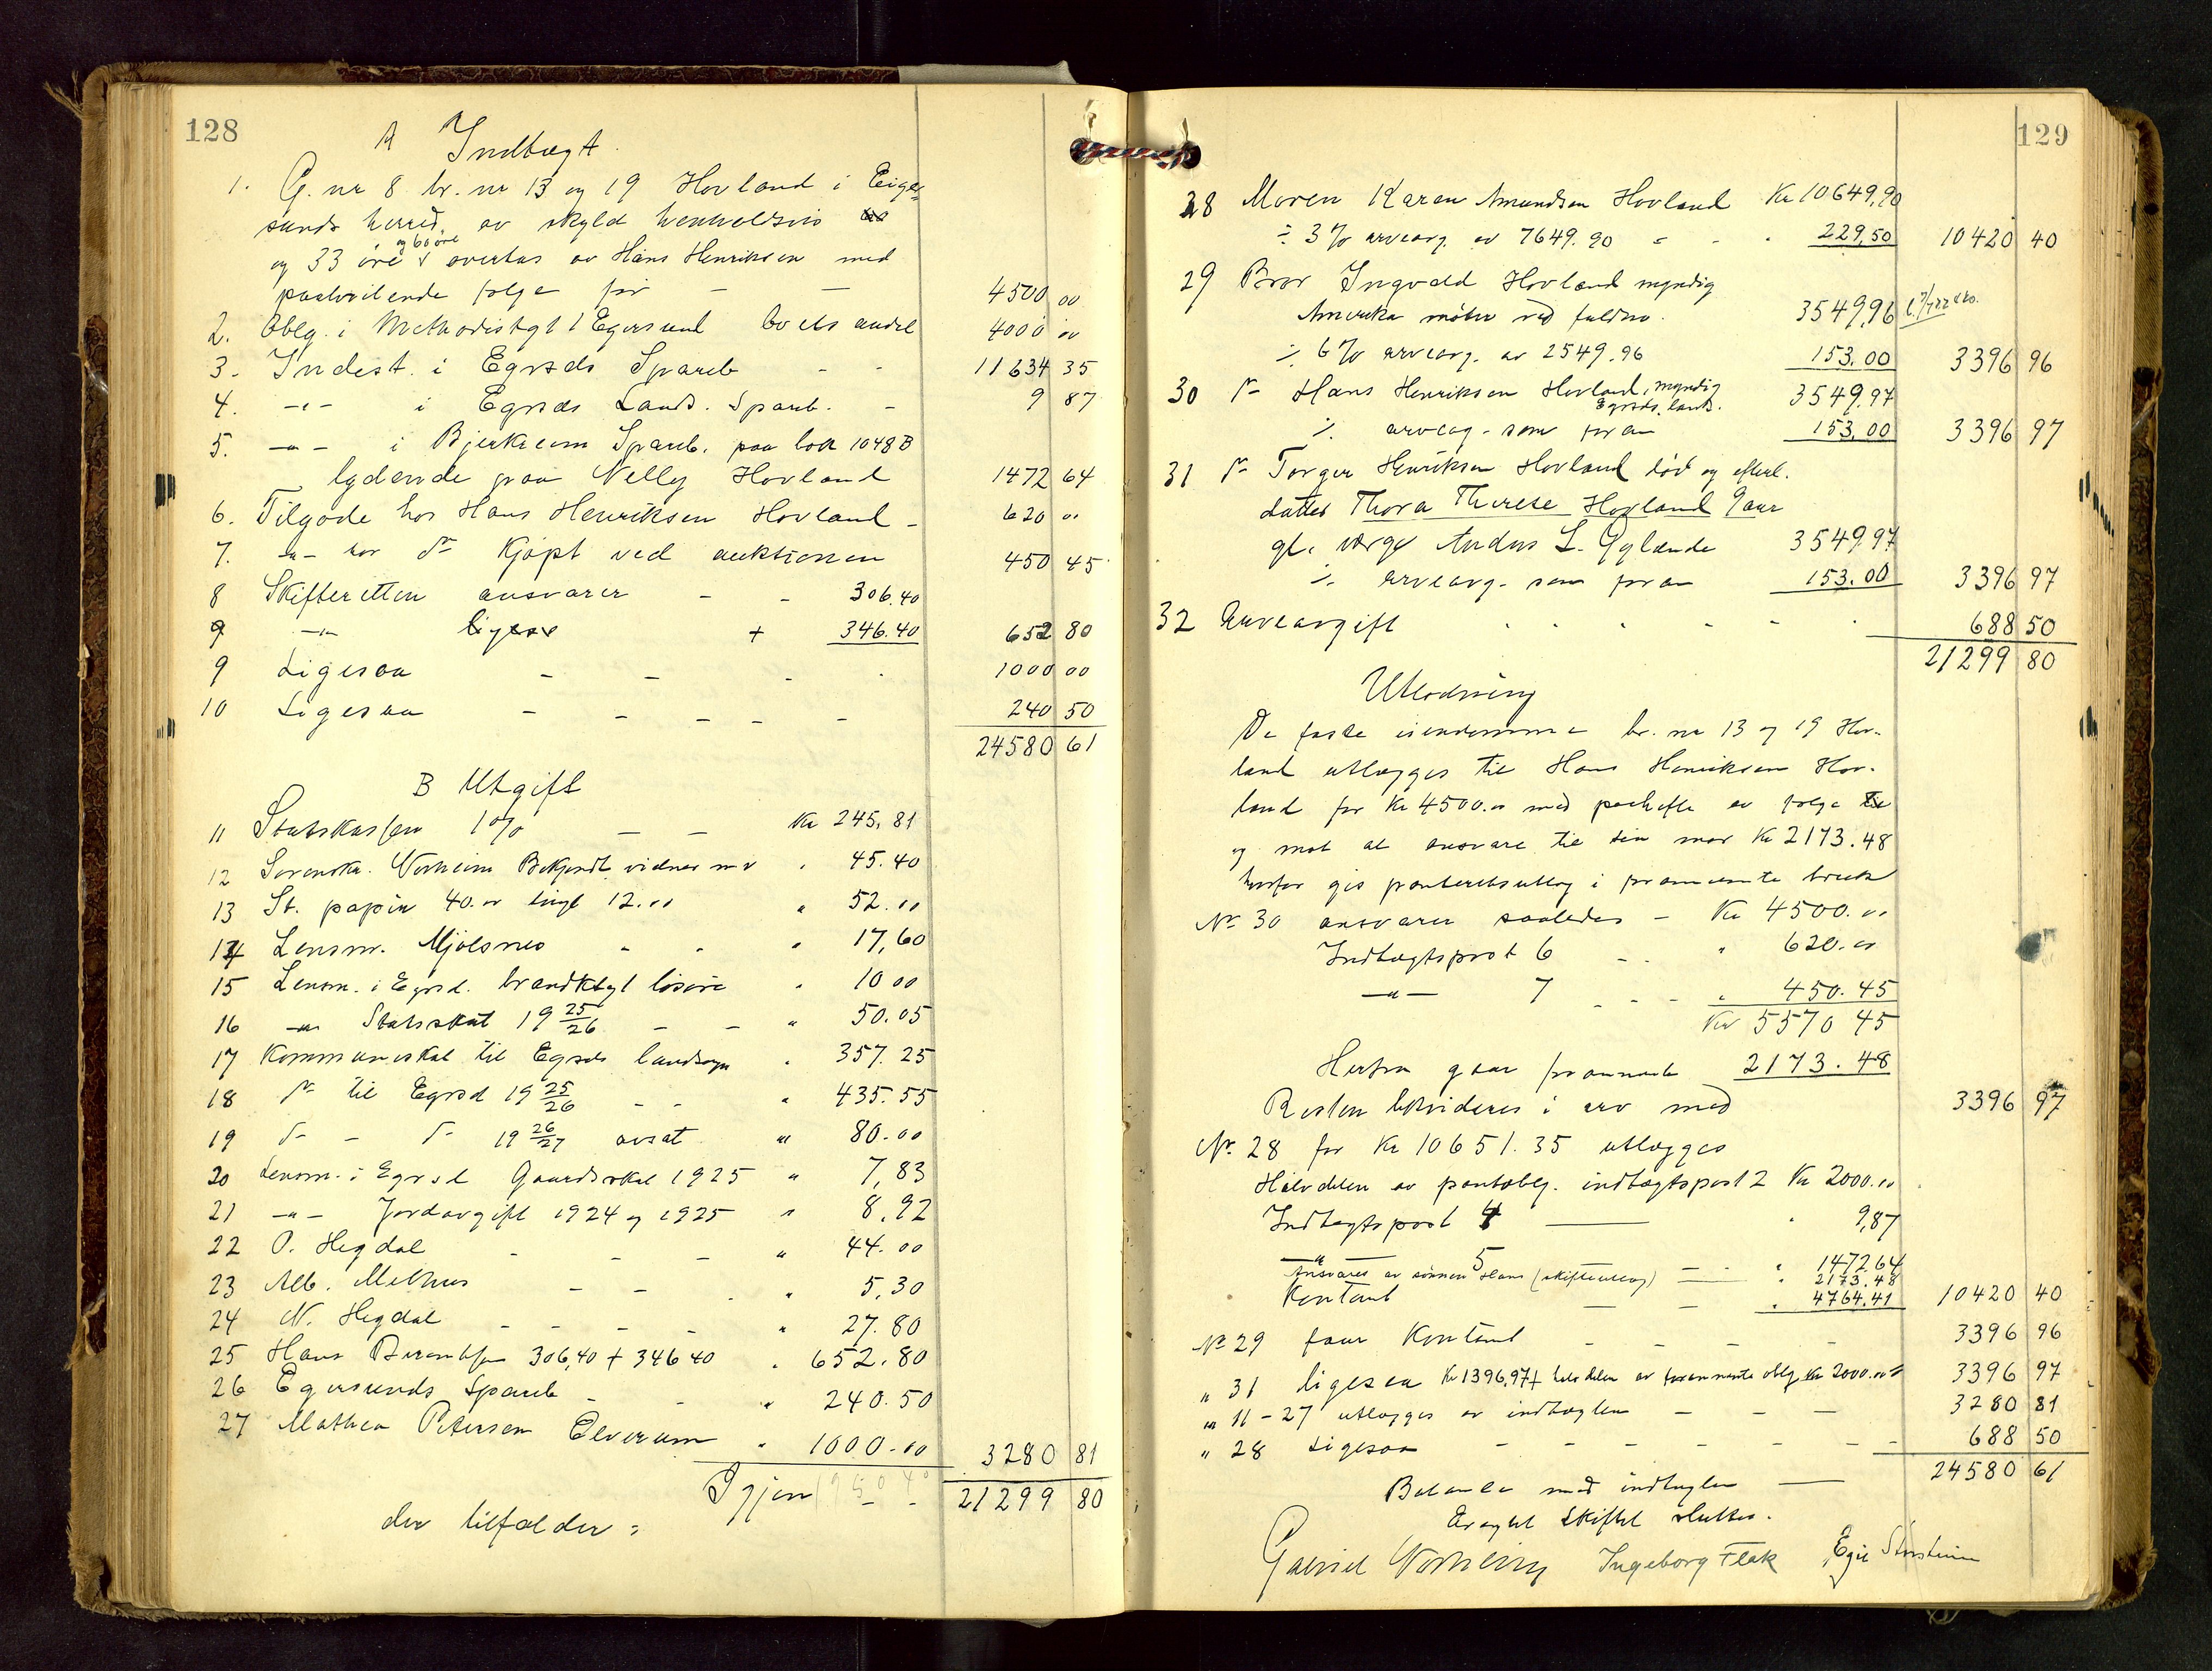 128
A Indtægt.
1. G. nr 8 br. nr 13 og 19 Hovland i Eiger=
sunds herred, av skyld henholdsvis
og 60 øre
og 33 øre overtas av Hans Henriksen med
paahvilende følge for - - 4500 00
2. Oblg. i Methodistkgl i Egersund boets andel 4000 00
3. Indest. i Egrsds Spareb - - 11634 35
4. -"- i Egrsds Lands. Spareb. - 9 87
5. -"- i Bjerkreim Spareb. paa bok 1048 B
lydende paa Nelly Hovland 1472 64
6. Tilgode hos Hans Henriksen Hovland - 620 00
7. -"- hos do Kjøpt ved auktionen 450 45
8 Skifteretten ansvarer - - 306.40
9 -"- ligesaa + 346.40 652 80
9 Ligesaa - - - . 1000 00
10 Ligesaa - - - - - 240 50
24580 61
B Utgift
11 Statskassen 1% - - Kr 245,81
12 Sorenskr. Norheim Bekjendt. vidner m v " 45.40
13 St. papir 40.00 tingl 12.00 " 52.00
14 Lensm. Mjølsnes - - " 17,60
15 Lensm. i Egrsd. brandktgl løsøre " 10 00
16 -"- Statsskat 19 25/26 - - " 50.05
17 Kommuneskat til Egrsds landsogn " 357.25
18 do til Egrsd 19 25/26 - - " 435.55
19 do - do 19 26/27 avsat " 80.00
20 Lensm. i Egrsd Gaardsskat 1925 " 7,83
21 -"- Jordavgift 1924 og 1925 " 8,92
22 O. Hegdal - - - " 44.00
23 Alb. Melhus - - . " 5,30
24 N. Hegdal - - - - " 27.80
25 Hans Berentsen 306,40 + 346 40 " 652.80
26 Egersunds Spareb - - " 240.50
27 Mathea Petersen Elverum " 1000.00 3280 81
Igjen - - 21299 80
der tilfalder:
129
28 Moren Karen Amundsen Hovland Kr 10649,90
÷ 3% arveavg. av 7649.90 - - . 229,50 10420 40
29 Bror Ingvald Hovland myndig
Amerika møter ved fuldm. 3549,96
÷ 6% arveavg. av 2549.96 153.00 3396 96
30 do Hans Henriksen Hovland, myndig
Egrsds. lands. 3549,97
÷ arveavg. som foran 153,00 3396 97
31 do Torger Henriksen Hovland død og efterl.
datter Thora Therese Hovland 9 aar
gl. værge Andus L. Gylande 3549,97
÷ arveavg. som foran 153.00 3396 97
32 Arveavgift . . . - - . 688 50
21299 80
Utlodning
De faste eiendomme br. nr 13 og 19 Hov-
land utlægges til Hans Henriksen Hov-
land for Kr 4500.00 med paahefte av følge
og mot at ansvare til sin mor Kr 2173.48
hvorfor gis panteretsutlæg i frannævnte bruk
No 30 ansvarer saaledes - Kr 4500.00
Indtægtspost 6 - - " 620.00
-"- 7 - - - " 450.45
Kr 5570 45
Herfra gaar frannævnte 2173.48
Resten likvideres i arv med 3396 97
No 28 for Kr 10651.35 utlægges
Halvdelen av pantoblg. indtægtspost 2 Kr 2000.00
Indtægtspost 4 — " 9,87
-"- 5 - - " 1472 64
Ansvares av sønnen Hans (skifteutlæg) — " 2173.48
Kontant - - " 4764.41 10420 40
No 29 faar Kontant - - - - 3396 96
" 31 ligesaa Kr 1396,97 + halvdelen av forannævnte oblg. Kr 2000.00 = 3396 97
" 11 - 27 utlægges av indtægten - - - 3280 81
" 28 Ligesaa - - - - - - - 688 50
Balance med indtægten — 24580 61
Eragtet Skiftet sluttes.
Gabriel Norheim Ingeborg Flak Egil Storsteinn